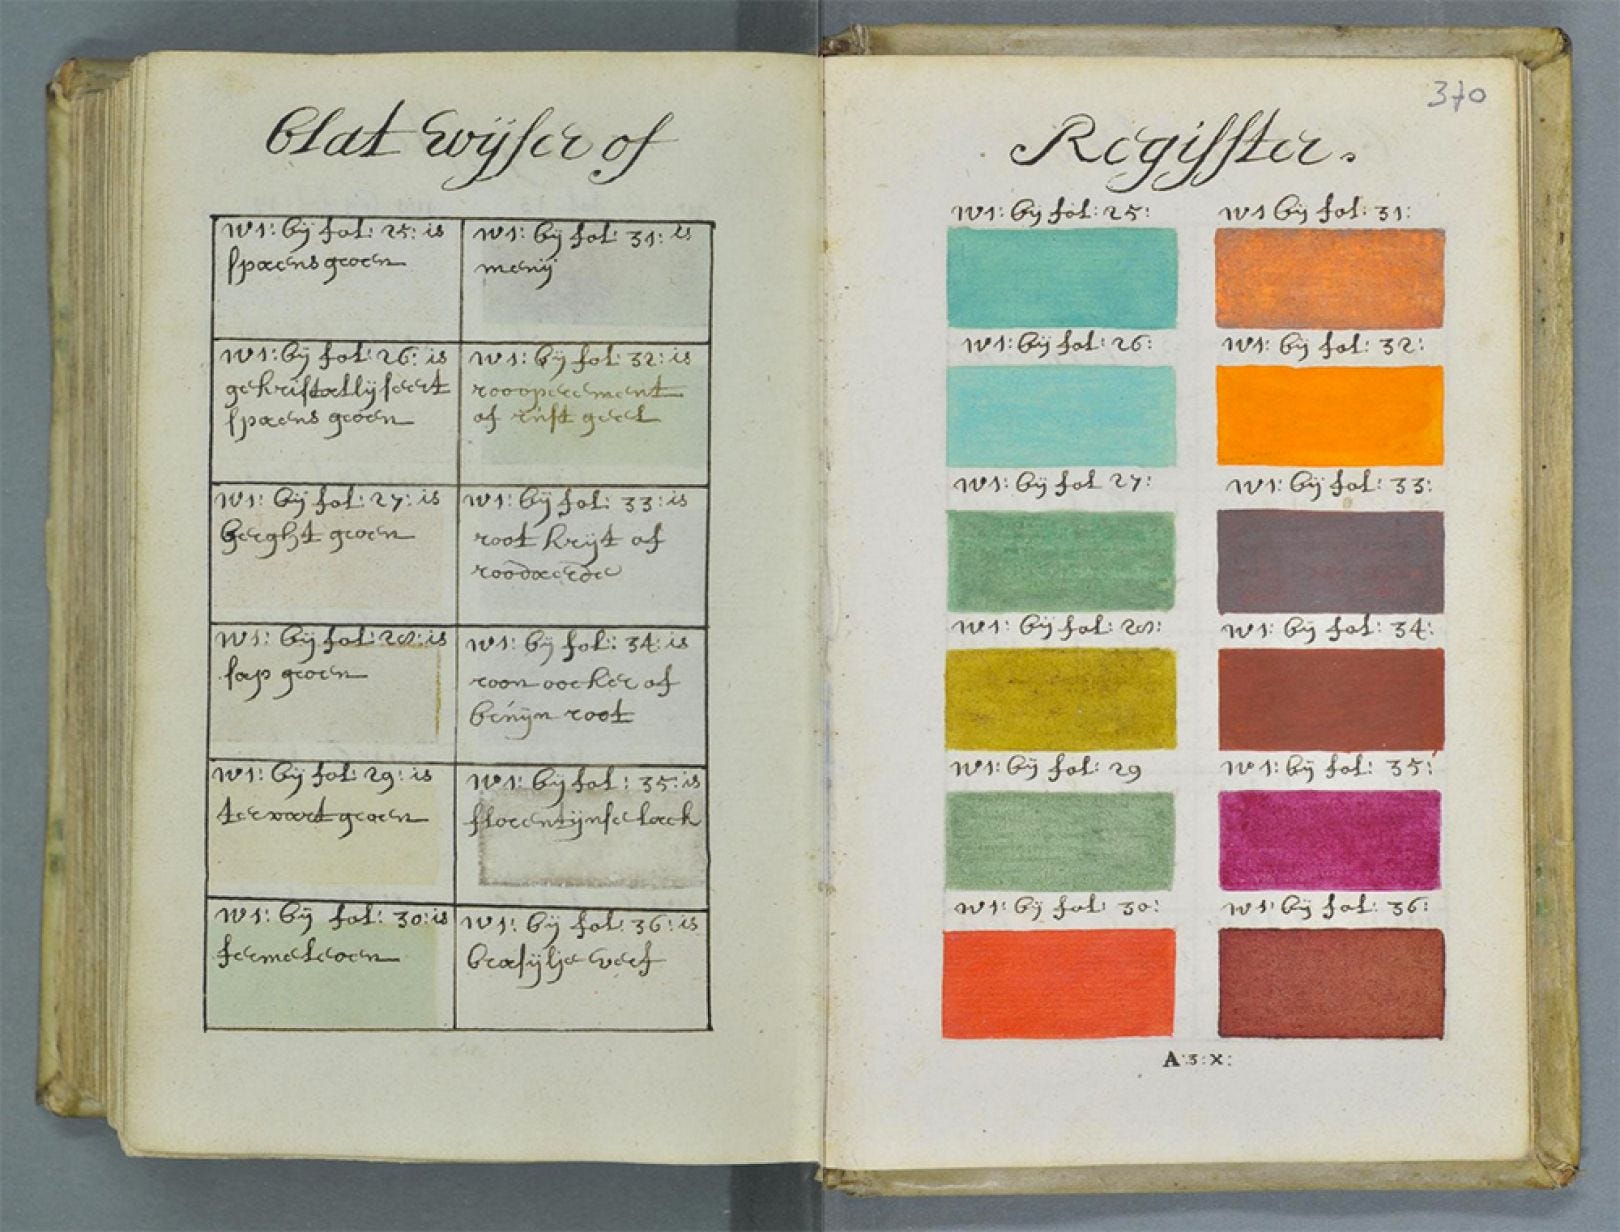 Blat wijser of
w1: bij fol: 25: is
spaens groen
w1: bij fol: 31: is
menij
w1: bij fol: 26: is
gekristallijseert
spaens groen
w1: bij fol: 32: is
rooopereement
of rust geel
w1: bij fol: 27: is
berght groen
w1: bij fol: 33: is
root krijt of
roodaerde
w1: bij fol: 28: is
sap groen
w1: bij fol: 34: is
roon oocker of
bruijn root
w1: bij fol: 29: is
terwart groen
w1: bij fol: 35: is
florentijnse lack
w1: bij fol: 30: is
fermeleoen
w1: bij fol: 36: is
brasijlje verf
370
Regisster.
w1: bij fol: 25:
w1 bij fol: 31:
w1: bij fol: 26:
w1: bij fol: 32:
w1: bij fol 27:
w1: bij fol: 33:
w1: bij fol: 28:
w1: bij fol: 34:
w1: bij fol: 29
w1: bij fol: 35:
w1: bij fol: 30:
w1: bij fol: 36:
A:3:X: